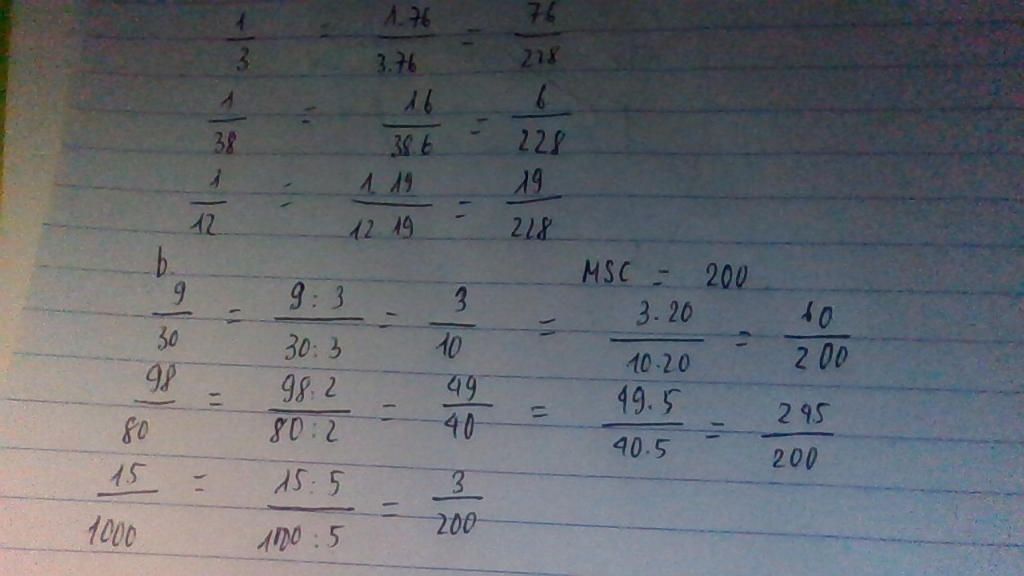 1/3 = 1.76/3.76 = 76/228
1/38 = 16/38 6 = 6/228
1/12 = 1 19/12 19 = 19/228
b. MSC = 200
9/30 = 9:3/30:3 = 3/10 = 3.20/10.20 = 60/200
98/80 = 98:2/80:2 = 49/40 = 49.5/40.5 = 245/200
15/1000 = 15:5/1000:5 = 3/200